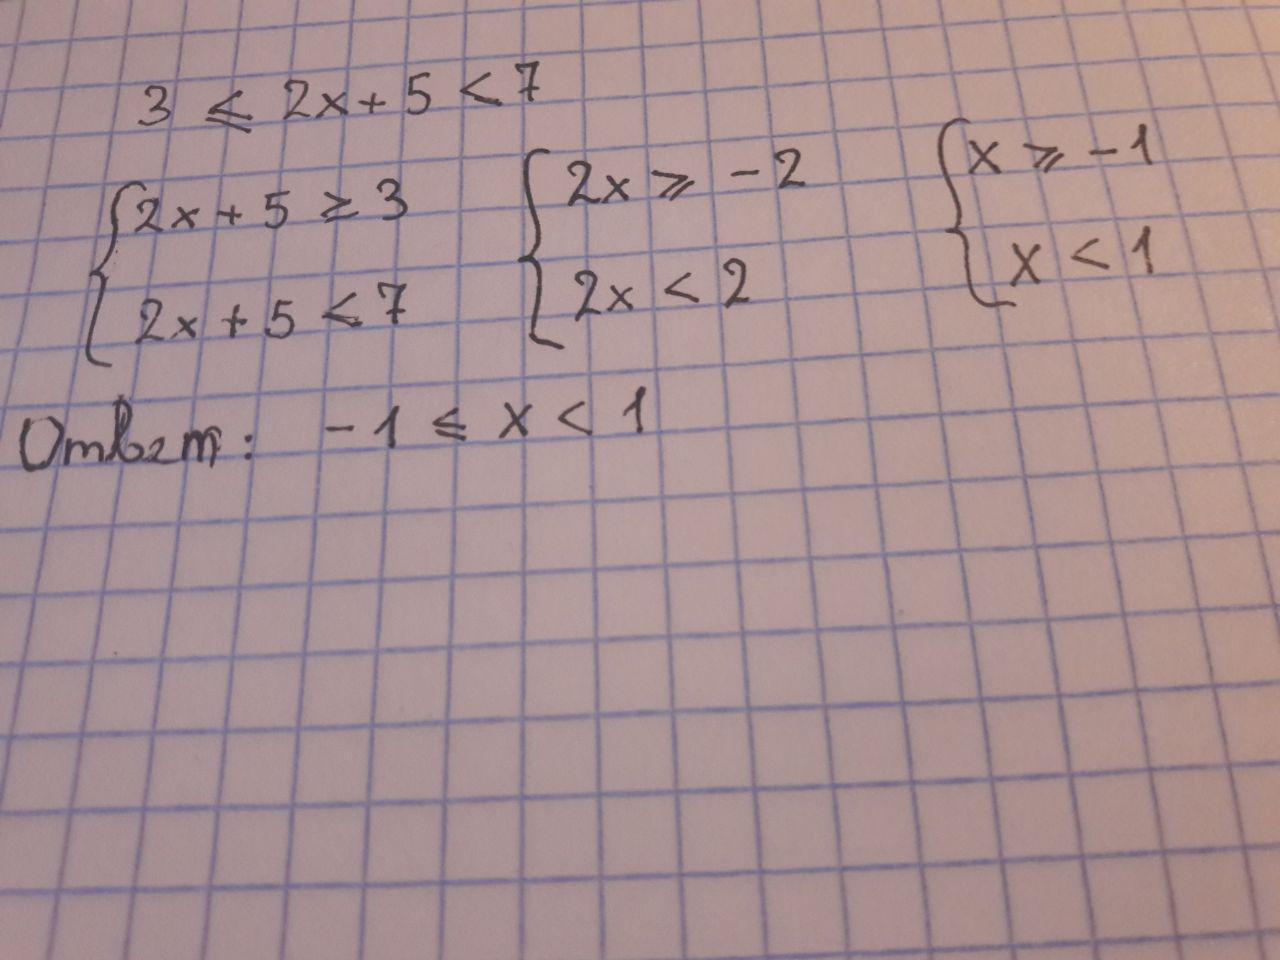 3 ⩽ 2x + 5 < 7
{ 2x + 5 ≥ 3
2x + 5 < 7
{ 2x ⩾ -2
2x < 2
{ x ⩾ -1
x < 1
Ответ: -1 ≤ x < 1